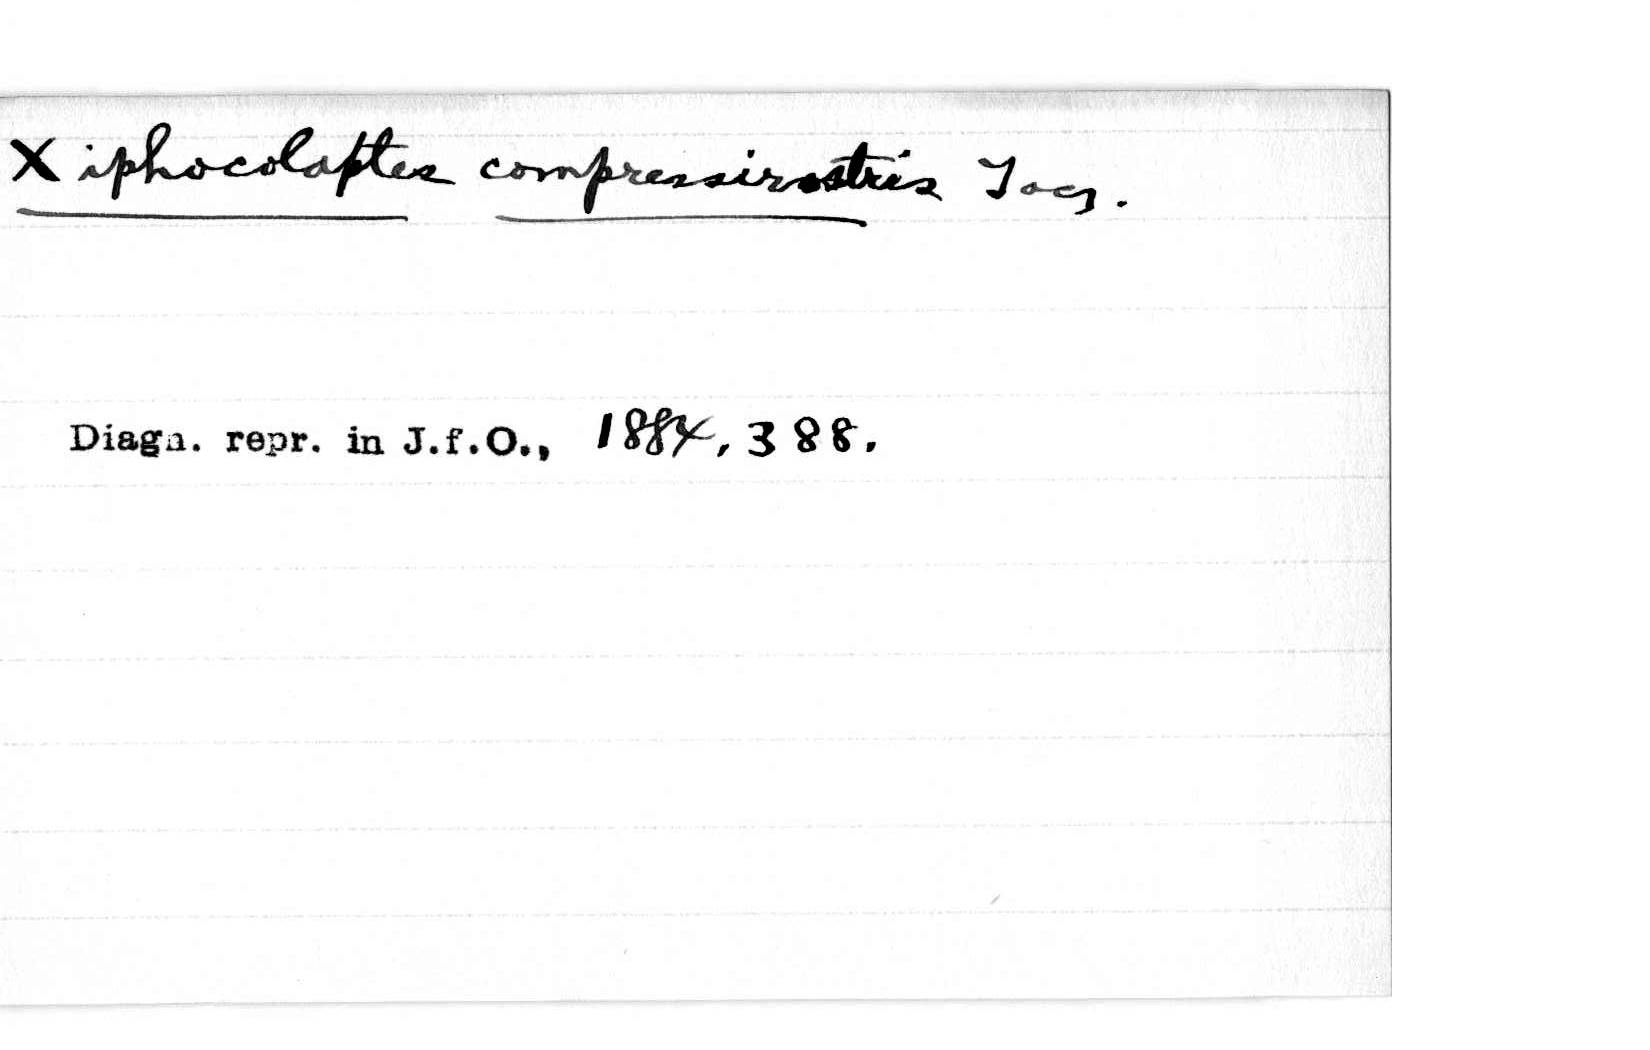 Xiphocolaptes compressirostris Tacz.
Diagn. repr. in J.f.O., 1884, 388.